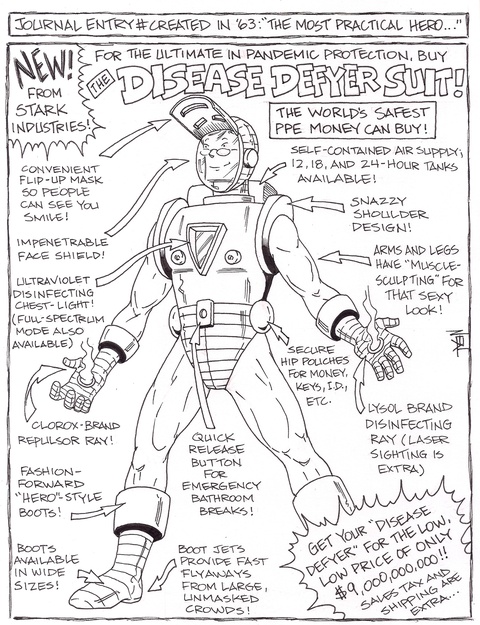 JOURNAL ENTRY# CREATED IN '63: "THE MOST PRACTICAL HERO..."
NEW!
FROM
STARK
INDUSTRIES!
FOR THE ULTIMATE IN PANDEMIC PROTECTION, BUY
THE DISEASE DEFYER SUIT!
THE WORLD'S SAFEST
PPE MONEY CAN BUY!
CONVENIENT
FLIP-UP MASK
SO PEOPLE
CAN SEE YOU
SMILE!
IMPENETRABLE
FACE SHIELD!
ULTRAVIOLET
DISINFECTING
CHEST-LIGHT!
(FULL-SPECTRUM
MODE ALSO
AVAILABLE)
CLOROX-BRAND
REPULSOR RAY!
FASHION-
FORWARD
"HERO"-STYLE
BOOTS!
BOOTS
AVAILABLE
IN WIDE
SIZES!
SELF-CONTAINED AIR SUPPLY;
12, 18, AND 24-HOUR TANKS
AVAILABLE!
SNAZZY
SHOULDER
DESIGN!
ARMS AND LEGS
HAVE "MUSCLE-
SCULPTING" FOR
THAT SEXY
LOOK!
SECURE
HIP POUCHES
FOR MONEY,
KEYS, I.D.,
ETC.
LYSOL BRAND
DISINFECTING
RAY (LASER
SIGHTING IS
EXTRA)
QUICK
RELEASE
BUTTON
FOR
EMERGENCY
BATHROOM
BREAKS!
BOOT JETS
PROVIDE FAST
FLYAWAYS
FROM LARGE,
UNMASKED
CROWDS!
GET YOUR "DISEASE
DEFYER" FOR THE LOW,
LOW PRICE OF ONLY
$9,000,000,000!!
SALES TAX AND
SHIPPING ARE
EXTRA...